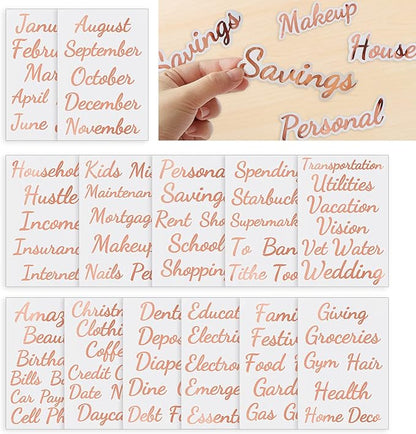 Janu
Febru
Mar
April
June
August
September
October
December
November
Savings
Makeup
House
Savings
Personal
Househol
Hustle
Income
Insuran
Internet
Kids Mi
Maintenan
Mortgag
Makeup
Nails Pe
Persona
Saving
Rent Sho
School
Shoppin
Spendin
Starbuck
Supermark
To Ban
Tithe Too
Transportation
Utilities
Vacation
Vision
Vet Water
Wedding
Amaz
Beau
Birthd
Bills B
Car Paym
Cell Ph
Christm
Clothi
Coffe
Credit C
Date N
Dayca
Dent
Depos
Diape
Dine
Debt F
Educat
Electri
Electron
Emerge
Essent
Fami
Festiv
Food
Gard
Gas G
Giving
Groceries
Gym Hair
Health
Home Deco